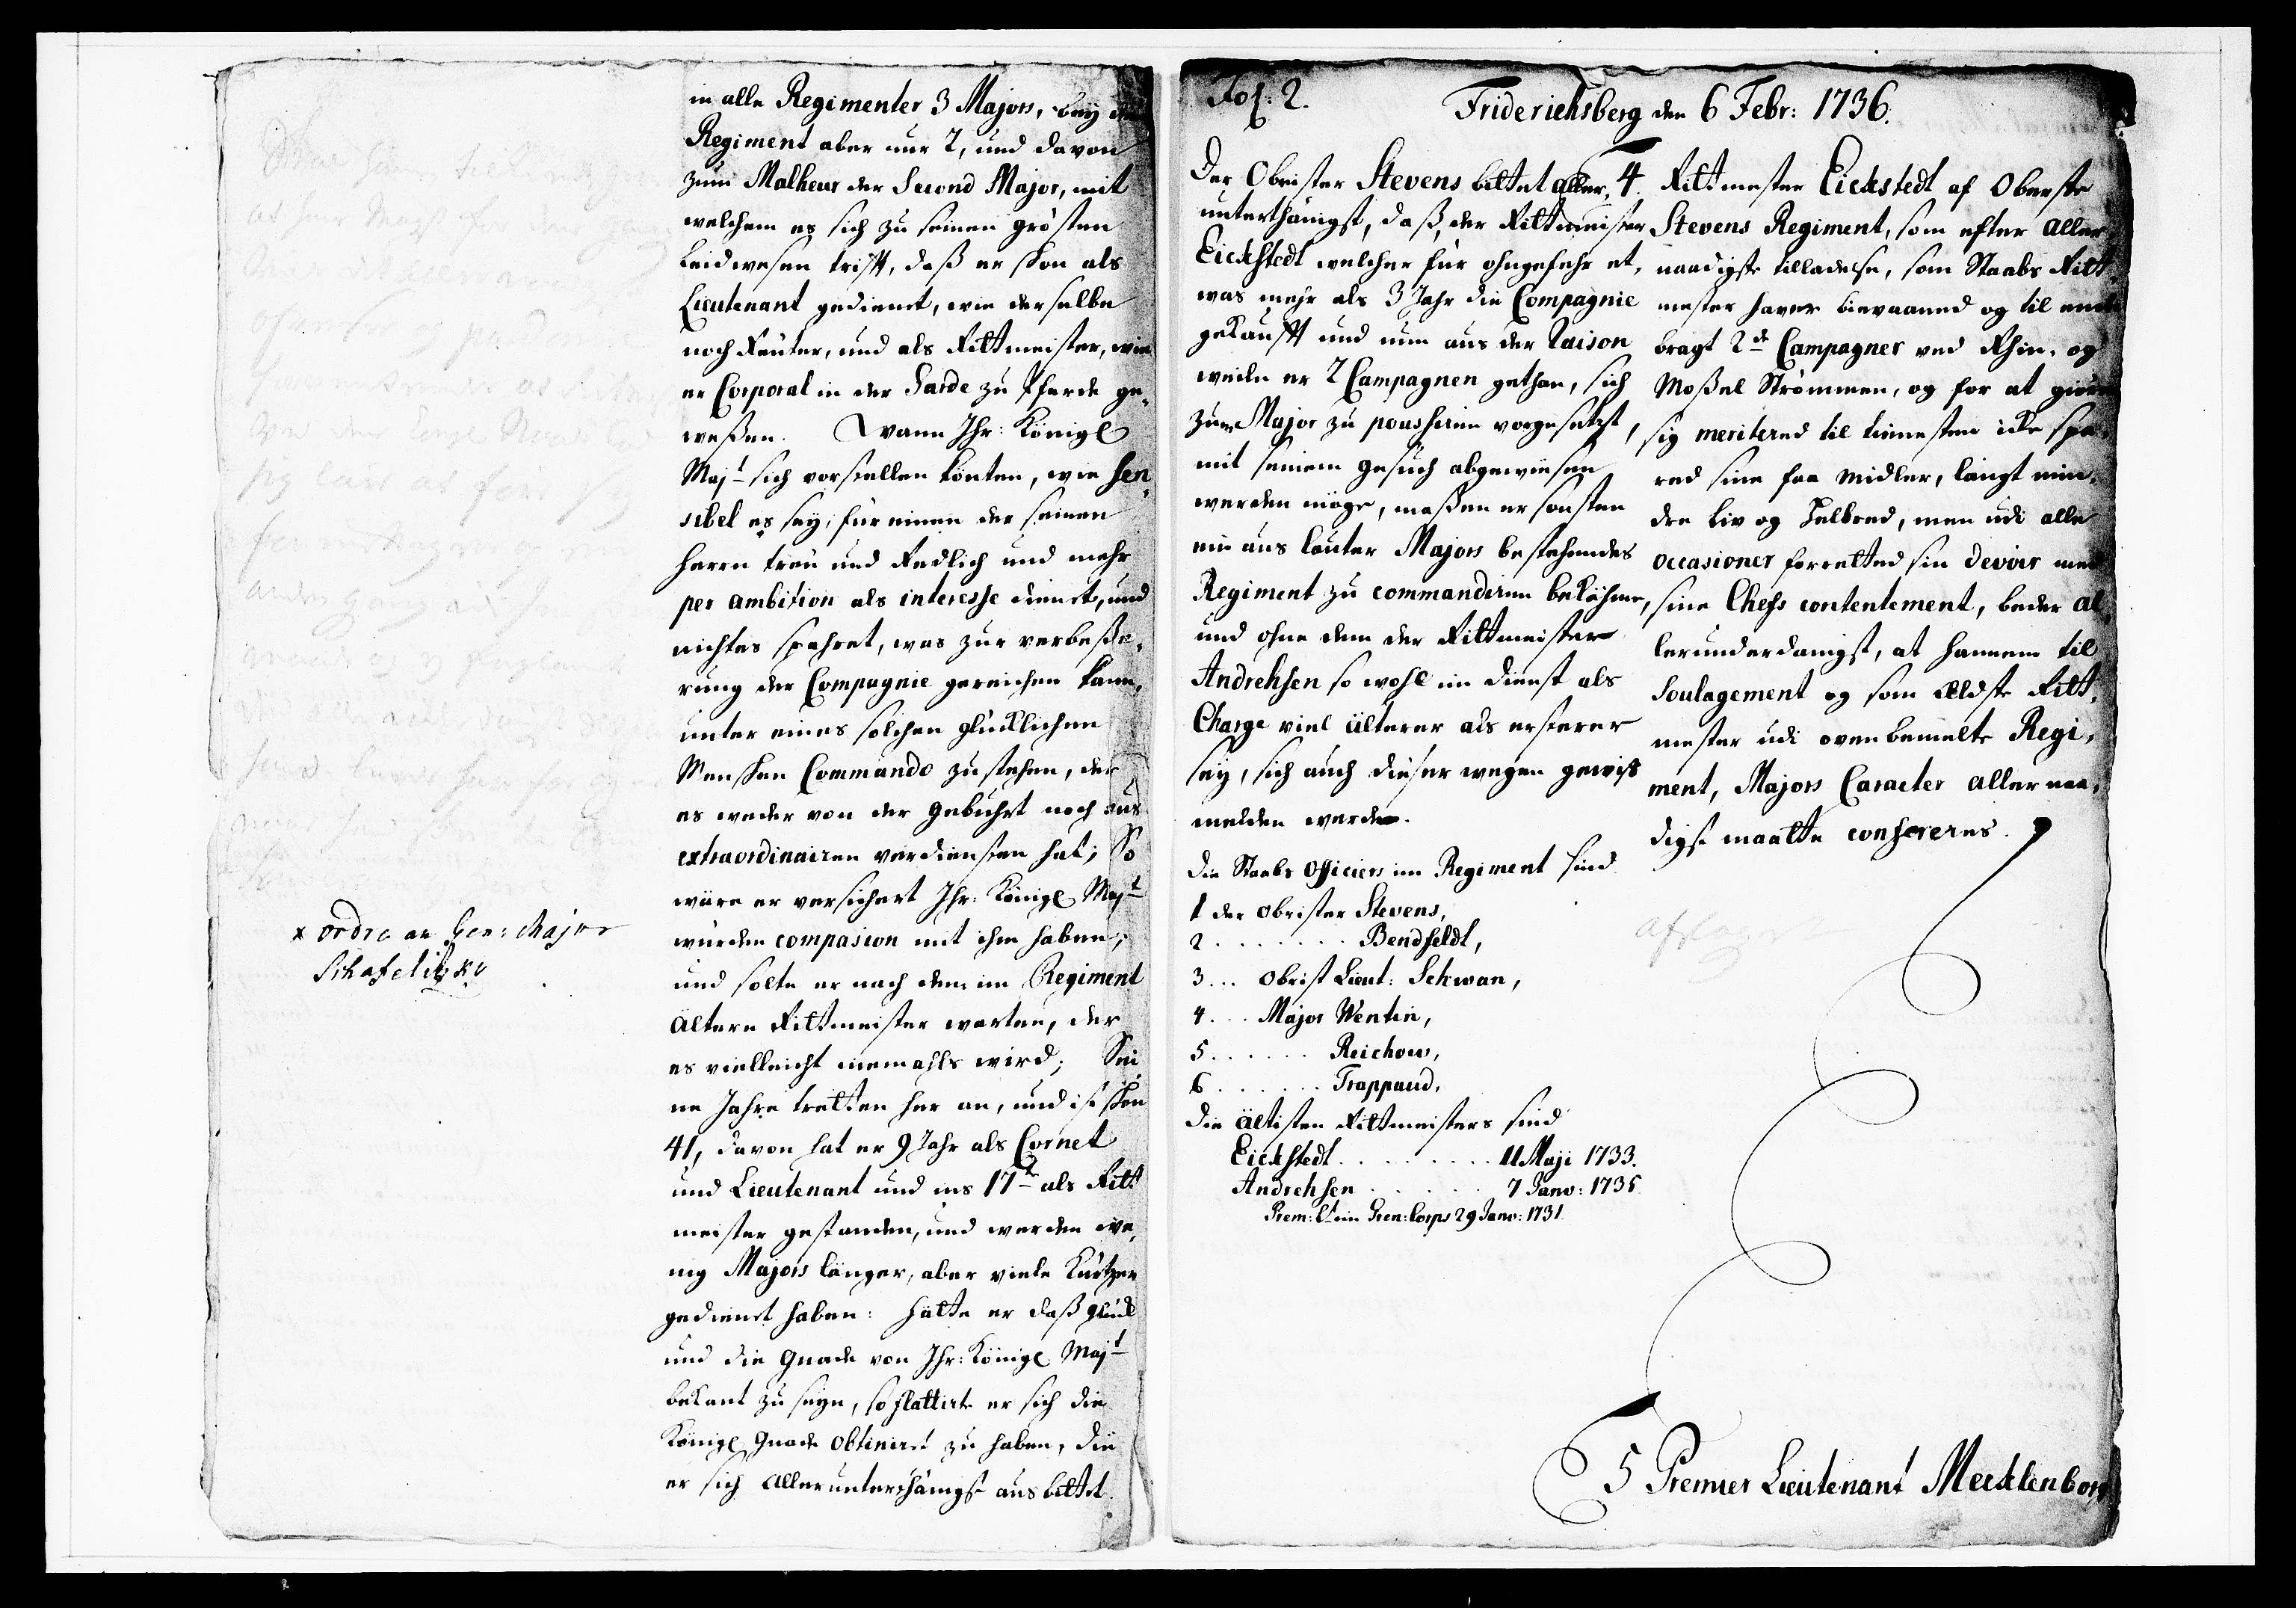 in alle Regimenter 3 Majors, bey
Regiment aber nur 2, und davon
zum Malheur der Second Major, mit
welchem es sich zu seinen grösten
Leidwesen trifft, daß er schon als
Lieutenant gedienet, wie derselbe
noch Reuter, und als Rittmeister, wie
er Corporal in der Garde zu Pferde ge-
weßen. Wann Ihr: Königl
Majt sich vorstellen könten, wie sen-
sibel es sey, für einen der seinen
Herrn treu und Redlich und mehr
per ambition als interesse dienet, und
nichtes spahret, was zur verbeße-
rung der Compagnie gereichen kann,
unter eines solchen glücklichen
Menschen Commando zu stehen, der
es weder von der Gebuhrt noch aus
extraordinairen verdiensten hat; So
wäre er versichert Ihr: Königl Majt
würden compasion mit ihm haben;
und solte er nach dem im Regiment
ältern Rittmeister warten, der
es vielleicht niemahls wird; Sei-
ne Jahre tretten her an, und ist schon
41, davon hat er 9 Jahr als Cornet
und Lieutenant und ins 17t als Ritt
meister gestanden, und werden we-
nig Majors länger, aber viele kürtzer
gedienet haben: hätte er daß glück
und die Gnade von Ihr: Königl Majt
bekant zu seyn, so flattirte er sich die
Königl Gnade obtiniret zu haben, die
er sich allerunterthänigst ausbittet.
x ordre an Gen: Major
Schafelitzky
Fol: 2.
Friderichsberg den 6 Febr: 1736.
Der Obrister Stevens bittet aller-
unterthänigst, daß, der Rittmeister
Eickstedt welcher für ohngefehr et-
was mehr als 3 Jahr die Compagnie
gekaufft und nun aus der Raison
weilen er 2 Campagnen gethan, sich
zum Major zu poussiren vorgesetzt,
mit seinem gesuch abgewiesen
werden möge, maßen er sonsten
ein aus lauter Majors bestehendes
Regiment zu commandiren bekähme,
und ohne dem der Rittmeister
Andrehsen so wohl im dienst als
Charge viel älterer als ersterer
sey, sich auch dieser wegen gewiß
melden werde.
Die Staabs Officiers im Regiment sind
1 der Obrister Stevens,
2 . . . . . . . Bendfeldt,
3 . . . Obrist Lieut: Schwan,
4 . . . Major Wentin,
5 . . . . . . Reichow,
6 . . . . . . Trappaud,
Die ältisten Rittmeisters sind
Eickstedt . . . . . . . . 11 Maji 1733.
Andrehsen . . . . . . 7 Janv: 1735
Prem: Lt im Gren: Corps 29 Janv: 1731.
4. Rittmester Eickstedt af Oberste
Stevens Regiment, som efter Aller-
naadigste tilladelse, som Staabs Ritt-
mester haver bievaaned og til ende
bragt 2de Campagner ved Rhin- og
Moßel Strömmen, og for at giøre
sig meritered til tienesten icke spa-
red sine faa Midler, langt min-
dre Liv og Helbred, men udi alle
occasioner forretted sin devoir med
sine Chefs contentement, beder al-
lerunderdanigst, at hannem til
Soulagement og som ældste Ritt-
mester udi ovenbemelte Regi-
ment, Majors Caracter Allernaa-
digst maatte confereres.
afslaaes
5 Premier Lieutenant Mecklenborg